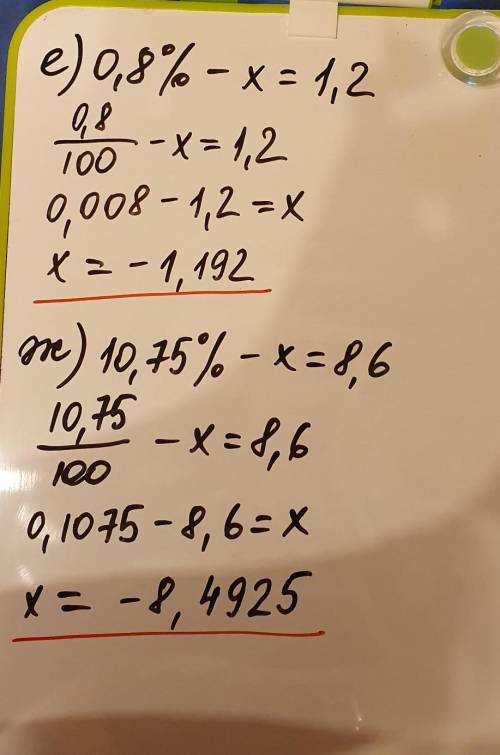 е) 0,8% - x = 1,2
0,8/100 - x = 1,2
0,008 - 1,2 = x
x = - 1,192
ж) 10,75% - x = 8,6
10,75/100 - x = 8,6
0,1075 - 8,6 = x
x = - 8,4925